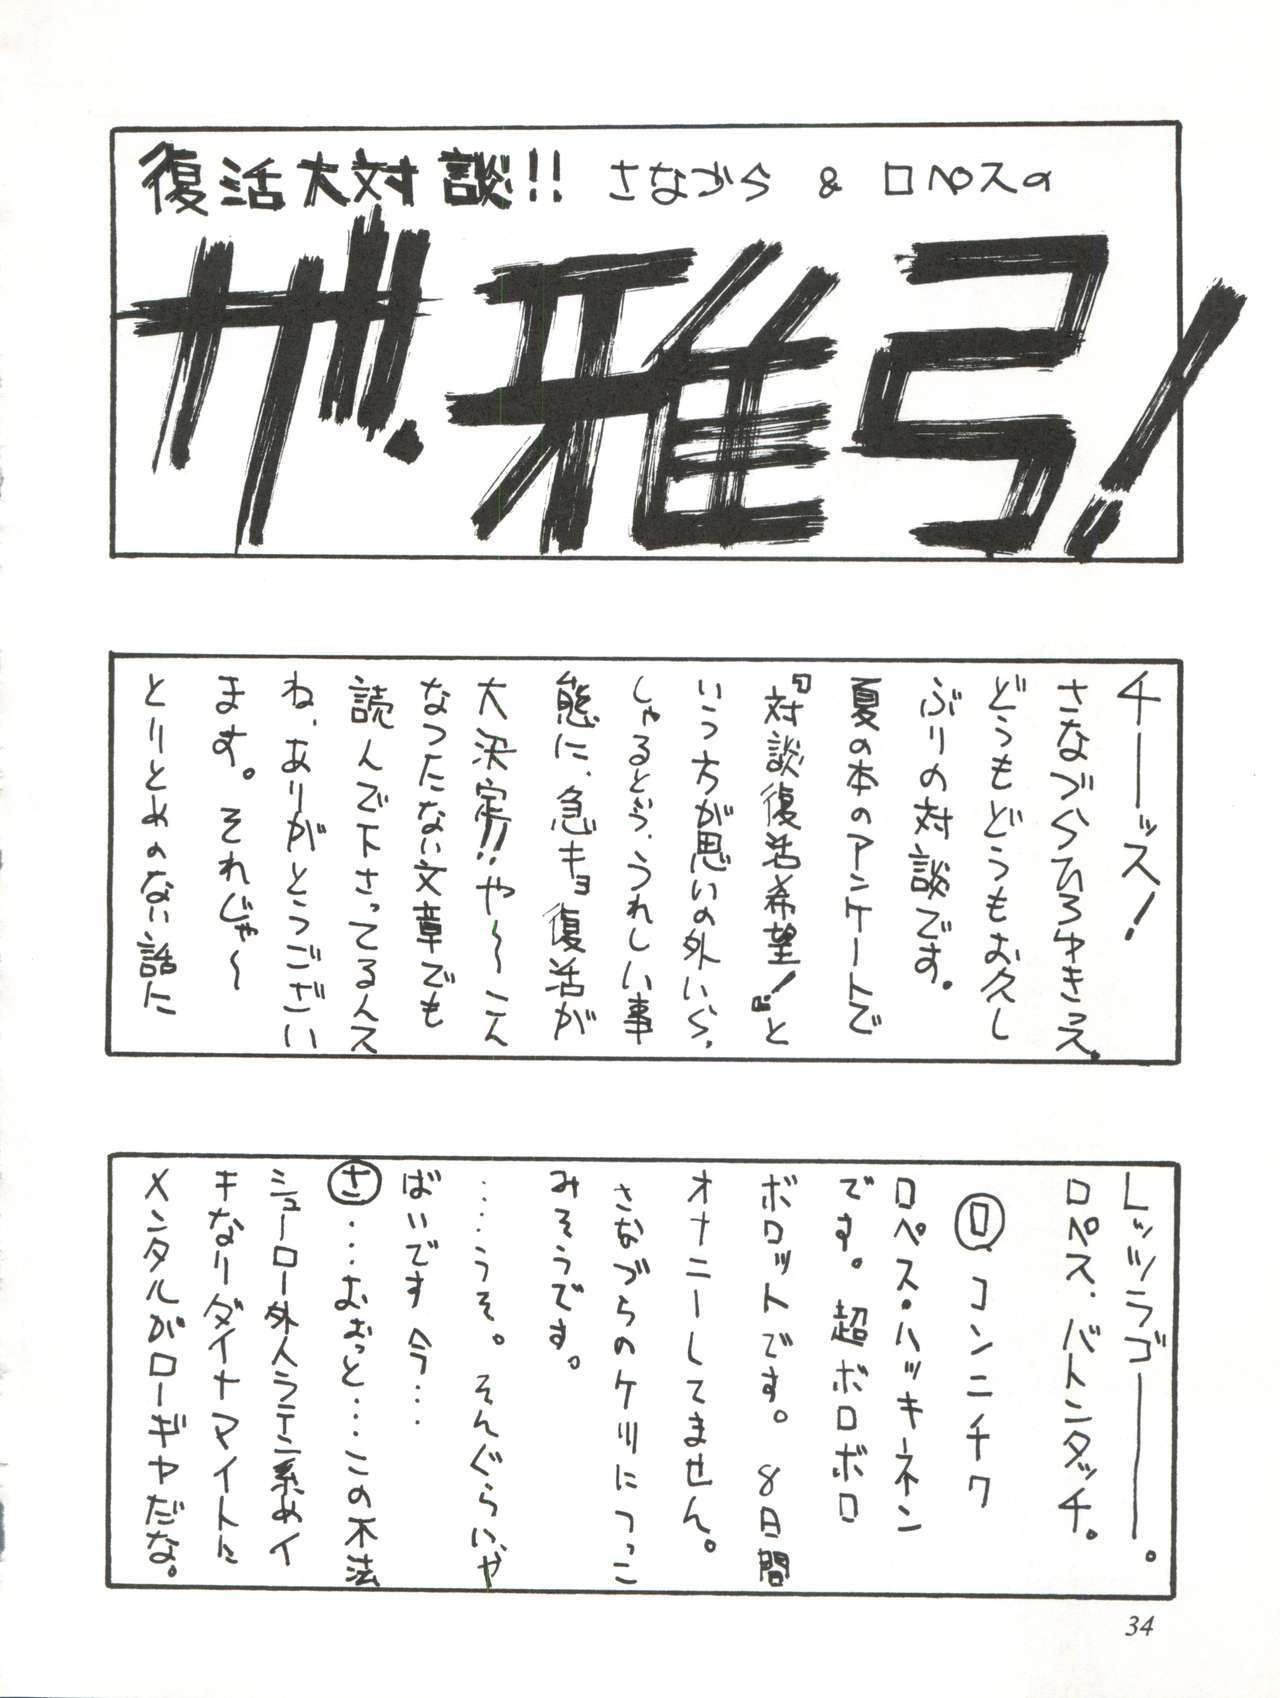 復活大対談!! さなづら & ロペスの
ザ・雅弓!
チーーッス!
さなづらひろゆきっス。
どうもどうもお久し
ぶりの対談です。
夏の本のアンケートで
『対談復活希望!』と
いう方が思いの外いら、
しゃるとゆう、うれしい事
態に、急キョ復活が
大決定!!や〜こん
なつたない文章でも
読んで下さってるんス
ね、ありがとうござい
ます。それじゃ〜
とりとめのない話に
レッツラゴーーー。
ロペス、バトンタッチ。
ロ コンニチワ
ロペス・ハッキネン
です。超ボロボロ
ボロットです。8日間
オナニーしてません。
さなづらのケツにつっこ
みそうです。
……うそ。そんぐらいや
ばいです今…
さ …おおっと…この不法
シューロー外人ラテン系めイ
キなりダイナマイトに
メンタルがローギヤだな。
34